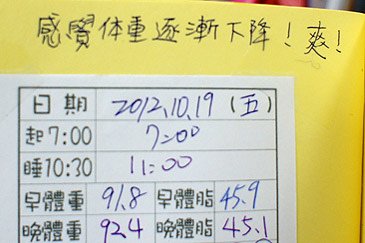 感覺体重逐漸下降！爽！
日期 2012.10.19 (五)
起7:00 7:00
睡10:30 11:00
早體重 91.8 早體脂 45.9
晚體重 92.4 晚體脂 45.1